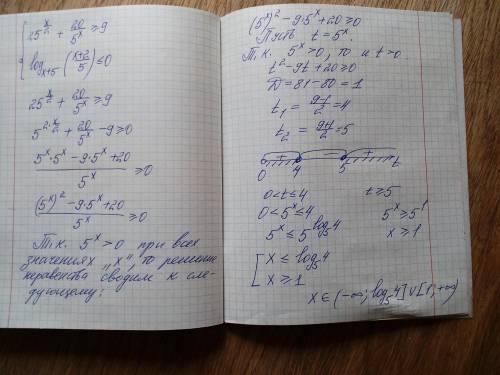 { 25^(x/2) + 20/5^x ≥ 9
{ log_(x+5) ((x+2)/5) ≤ 0
25^(x/2) + 20/5^x ≥ 9
5^(2·x/2) + 20/5^x − 9 ≥ 0
(5^x·5^x − 9·5^x + 20)/5^x ≥ 0
((5^x)^2 − 9·5^x + 20)/5^x ≥ 0
Т.к. 5^x > 0 при всех
значениях „x", то решение
неравенства сводим к сле-
дующему:
(5^x)^2 − 9·5^x + 20 ≥ 0
Пусть t = 5^x.
Т.к. 5^x > 0, то и t > 0.
t^2 − 9t + 20 ≥ 0
D = 81 − 80 = 1
t₁ = (9−1)/2 = 4
t₂ = (9+1)/2 = 5
+ − +
0 4 5 t
0 < t ≤ 4 t ≥ 5
0 < 5^x ≤ 4 5^x ≥ 5^1
5^x ≤ 5^(log₅4) x ≥ 1
[ x ≤ log₅4
[ x ≥ 1
x ∈ (−∞; log₅4] ∪ [1; +∞)